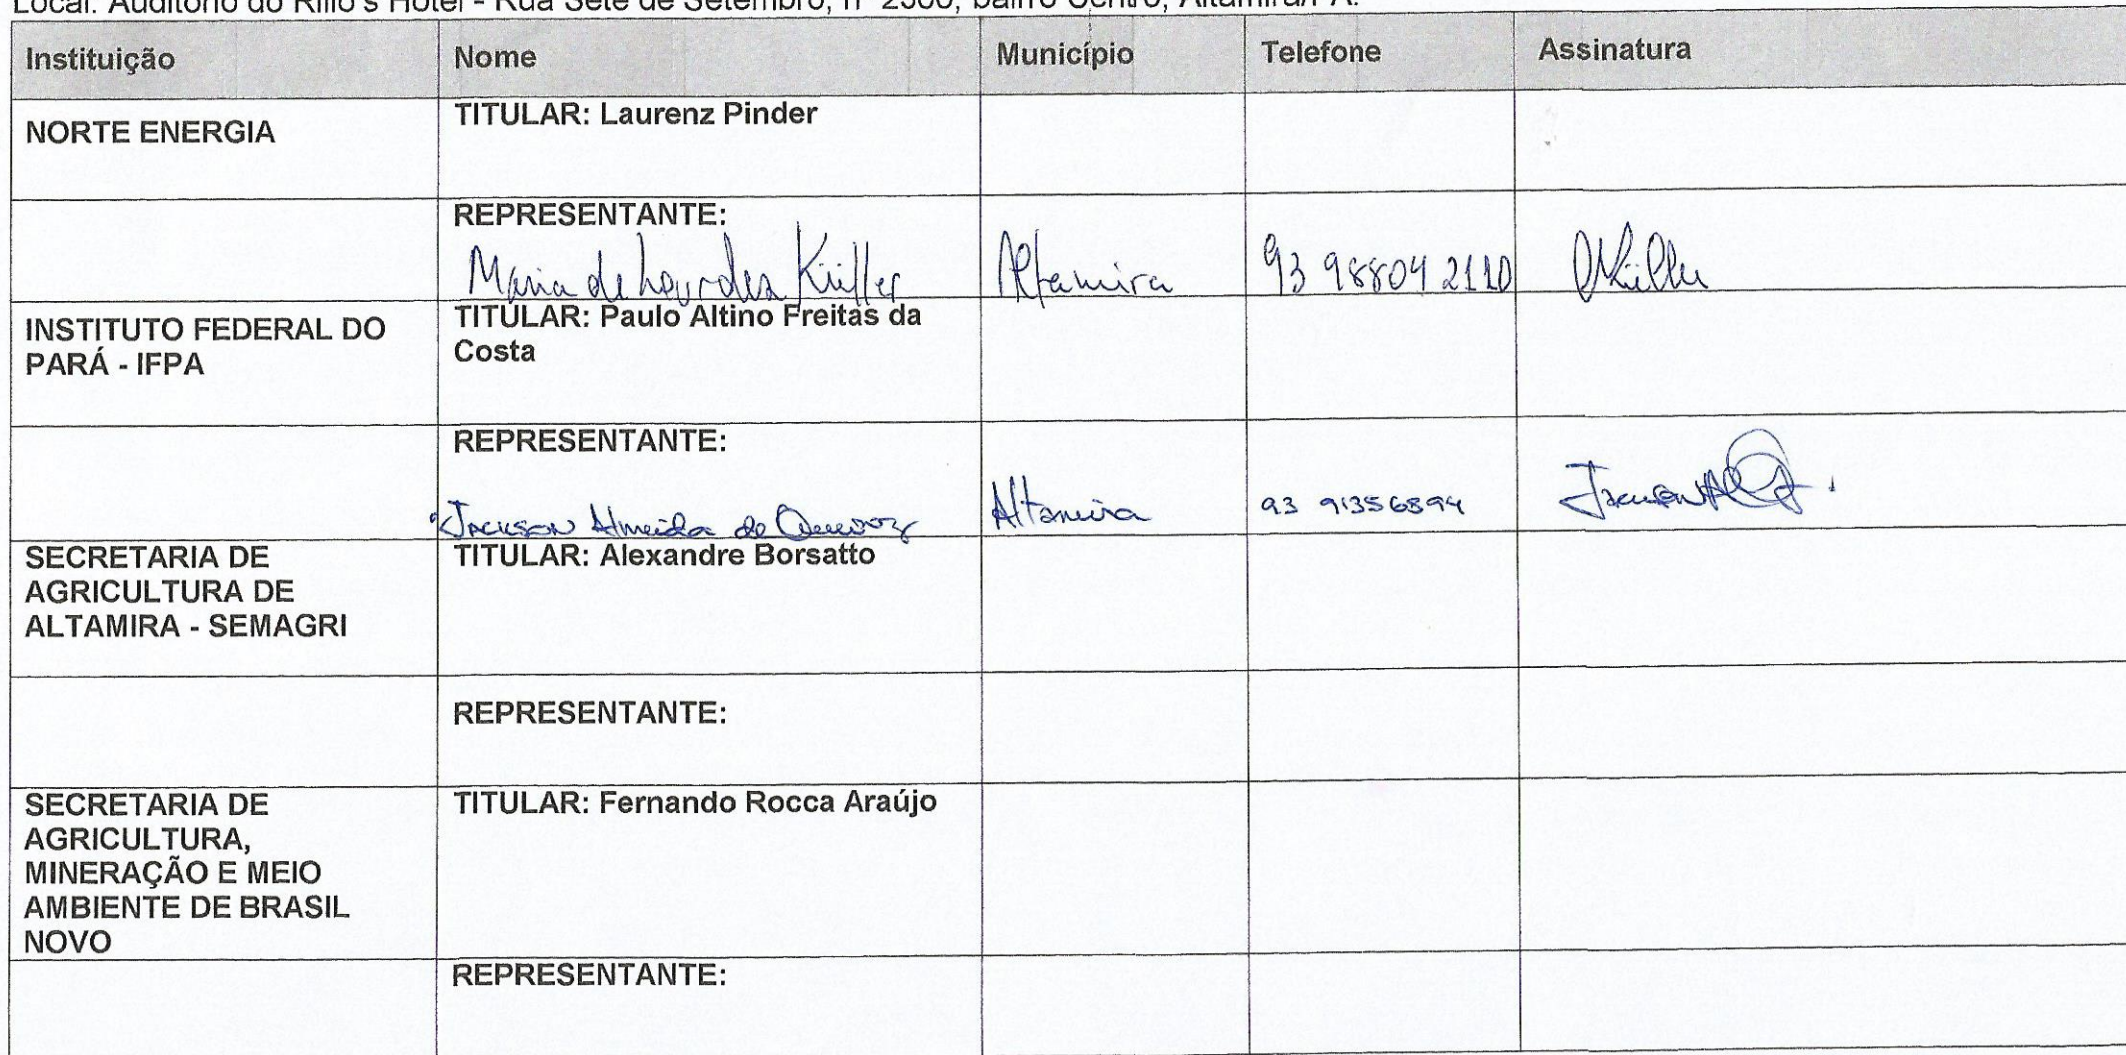 Local: Auditório do Rillo's Hotel - Rua Sete de Setembro, nº 2500, bairro Centro, Altamira/PA.
Instituição Nome Município Telefone Assinatura
NORTE ENERGIA TITULAR: Laurenz Pinder
REPRESENTANTE:
Maria de Lourdes Küller Altamira 93 98804 2110 Küller
INSTITUTO FEDERAL DO
PARÁ - IFPA
TITULAR: Paulo Altino Freitas da
Costa
REPRESENTANTE:
Jackson Almeida de Queiroz Altamira 93 91356594
SECRETARIA DE
AGRICULTURA DE
ALTAMIRA - SEMAGRI
TITULAR: Alexandre Borsatto
REPRESENTANTE:
SECRETARIA DE
AGRICULTURA,
MINERAÇÃO E MEIO
AMBIENTE DE BRASIL
NOVO
TITULAR: Fernando Rocca Araújo
REPRESENTANTE: